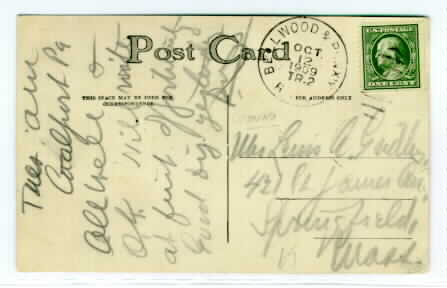 Post Card
THIS SPACE MAY BE USED FOR
CORRESPONDENCE.
FOR ADDRESS ONLY
OCT
12
1909
TR.2
U.S. POSTAGE
ONE CENT
Tues am
Coalport Pa
All well &
OK will write
at first opportunity
Good bye
Mrs Louis A.
427 St James Av.
Springfield,
Mass.